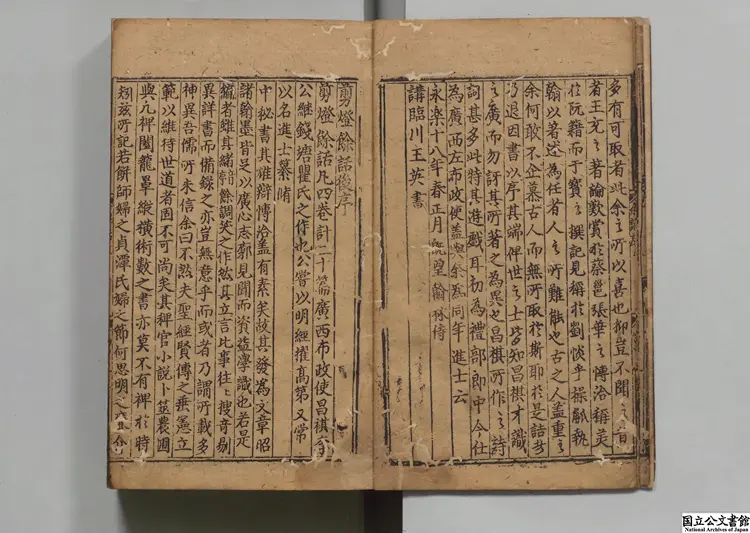 多有可取者此余之所以喜也抑豈不聞之昔
者王充之著論衡賞於蔡邕張華之博洽稱美
於阮籍而干寶之撰記見稱於劉惔乎操觚執
翰以著述為任者人之所難能也古之人盖重之
余何敢不企慕古人而無所取於斯耶於是詰者
乃退因書以序其端俾世之士皆知昌祺才識
之廣而勿訝其所著之為異也昌祺所作之詩
詞甚多此特其遊戲耳初為禮部郎中今仕
為廣西左布政使盖與余為同年進士云
永楽十八年春正月既望翰林侍
講臨川王英書
剪燈餘話後序
剪燈餘話凡四卷計二十篇廣西布政使昌祺李
公維錢塘瞿氏之作也公嘗以明經擢高第又常
以名進士纂脩
中秘書其雄辯博洽盖有素矣故其發為文章昭
諸翰墨皆足以廣心志郭見聞而資益學識也若是
編者雖其緒餘調笑之作然其立言比事往々搜奇剔
異詳書而備錄之亦豈無意乎而或者乃謂所載多
神異吾儒所未信余曰不然夫聖經賢傳之垂憲立
範以維持世道者固不可尚矣其稗官小説卜筮農圃
與凡裨闔龍罩縱橫術數之書亦莫不有裨於時
矧茲所記若餅師婦之貞潭氏婦之節何思明之
国立公文書館
National Archives of Japan